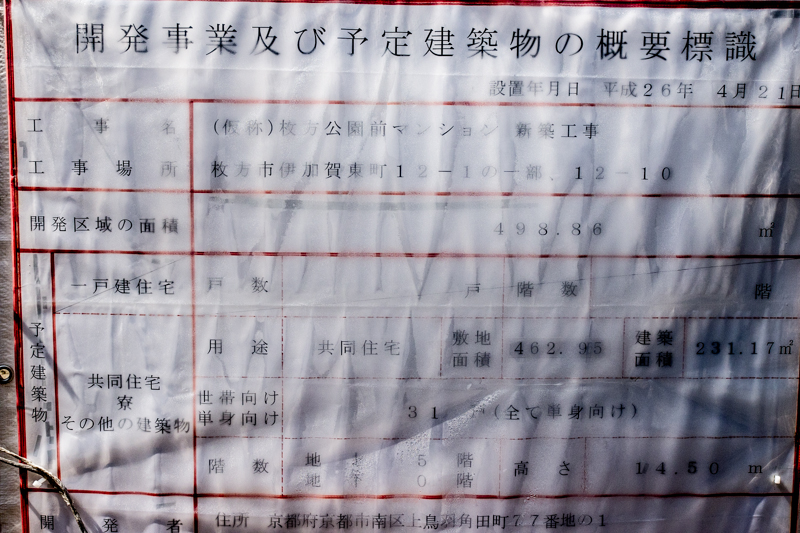 開発事業及び予定建築物の概要標識
設置年月日 平成26年 4月21日
工事名 (仮称)枚方公園前マンション 新築工事
工事場所 枚方市伊加賀東町12-1の一部、12-10
開発区域の面積 498.86 ㎡
予定建築物
一戸建住宅 戸数 戸 階数 階
共同住宅
寮
その他の建築物
用途 共同住宅 敷地面積 462.95 建築面積 231.17㎡
世帯向け
単身向け
31 戸(全て単身向け)
階数 地上 5 階
地下 0 階
高さ 14.50 m
開発者 住所 京都府京都市南区上鳥羽角田町77番地の1